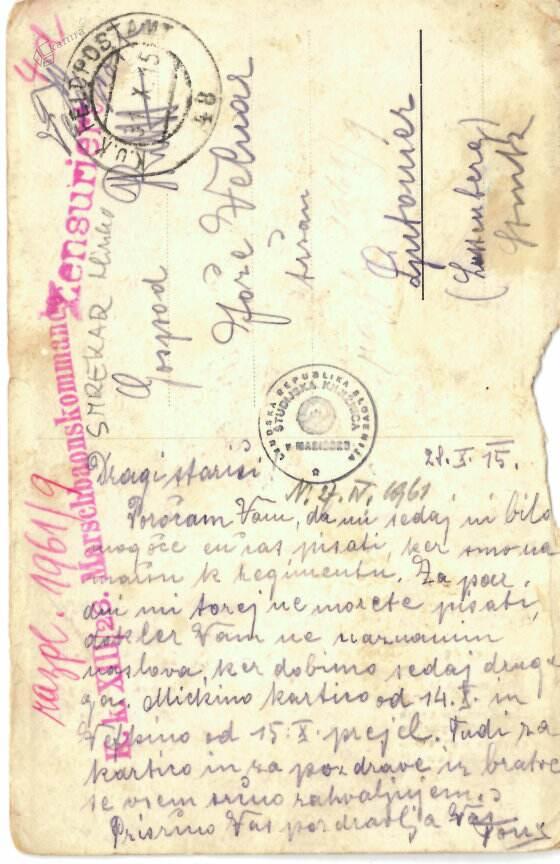 kamra
K.U.K. FELDPOSTAMT
31 X 15
48
Zensuriert
K.k. XIII/26. Marschbaonskommando
SMREKAR Hinko
razpl. 1961/9
Gospod
Jože Velnar
tržan
Ljutomer
(Luttenberg)
Stmk
LJUDSKA REPUBLIKA SLOVENIJA
ŠTUDIJSKA KNJIŽNICA
V MARIBORU
N. 27. IV. 1961
28. X. 15.
Dragi stariši
Poročam Vam, da mi sedaj ni bilo
mogoče en čas pisati, ker smo na
k regimentu. Za par
dni mi torej ne morete pisati,
dokler Vam ne naznanim
naslova, ker dobimo sedaj druge
ga. Mickino kartico od 14. X. in
od 15. X. prejel. Tudi za
kartico in za pozdrave iz bratov
se vsem srčno zahvaljujem.
Prisrčno Vas pozdravlja Vaš